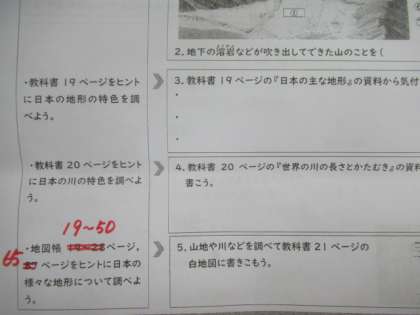 ①
2. 地下の溶岩などが吹き出してできた山のことを(
・教科書 19 ページをヒント
に日本の地形の特色を調
べよう。
3. 教科書 19 ページの『日本の主な地形』の資料から気付
・
・
・
・教科書 20 ページをヒント
に日本の川の特色を調べよ
う。
4. 教科書 20 ページの『世界の川の長さとかたむき』の資料
書こう。
19~50
・地図帳 ページ、
65 ページをヒントに日本の
様々な地形について調べよ
う。
5. 山地や川などを調べて教科書 21 ページの
白地図に書きこもう。